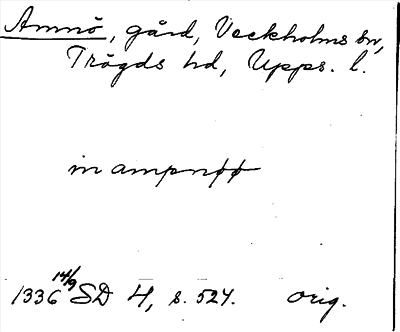 Amnö, gård, Veckholms sn,
Trögds hd, Upps. l.
in ampnøø
1336 14/9 SD 4, s. 527. orig.